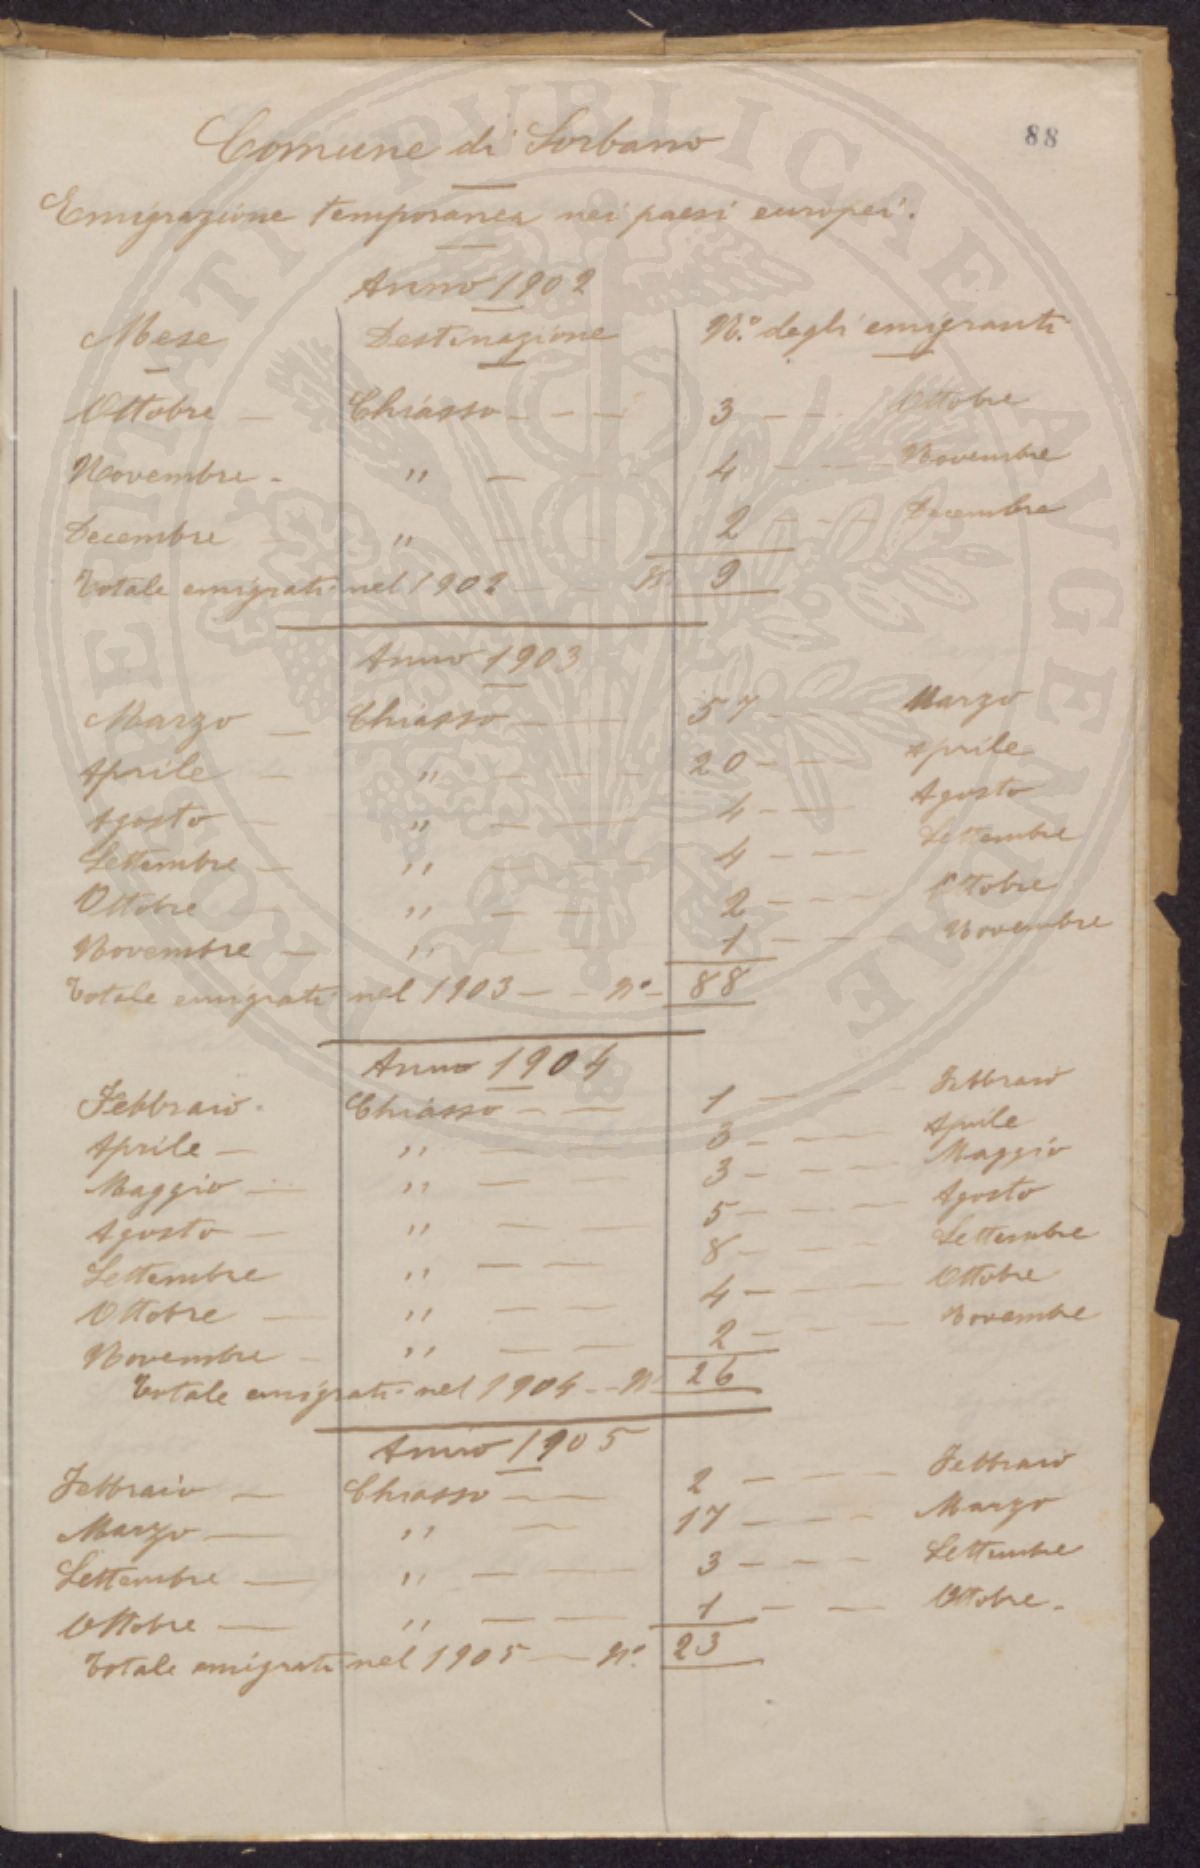 88
Comune di Sorbano
Emigrazione temporanea nei paesi europei.
Anno 1902
Mese Destinazione N.º degli emigranti
Ottobre — Chiasso — — — 3 — — Ottobre
Novembre - " — — — 4 — — — Novembre
Decembre — " — — 2 — — — Decembre
Totale emigrati nel 1902 — — N. 9
Anno 1903
Marzo — Chiasso — — 57 — Marzo
Aprile — " — — — 20 — — Aprile
Agosto — " — — 4 — — Agosto
Settembre — " — — — 4 — — — Settembre
Ottobre — " — — 2 — — — — Ottobre
Novembre — " — — 1 — — — — Novembre
Totale emigrati nel 1903 — — Nº — 88
Anno 1904
Febbraio. Chiasso — — 1 — — — Febbraio
Aprile — " — — 3 — — — Aprile
Maggio — " — — 3 — — — — Maggio
Agosto — " — — 5 — — — — Agosto
Settembre " — — 8 — — — Settembre
Ottobre — " — — 4 — — — — Ottobre
Novembre — " — — 2 — — — — Novembre
Totale emigrati nel 1904 — — N 26
Anno 1905
Febbraio — Chiasso — — 2 — — — — Febbraio
Marzo — " — 17 — — — Marzo
Settembre — " — — — 3 — — — Settembre
Ottobre — " — — 1 — — — Ottobre.
Totale emigrati nel 1905 — — Nº. 23
PUBLICAE AVGENDAE